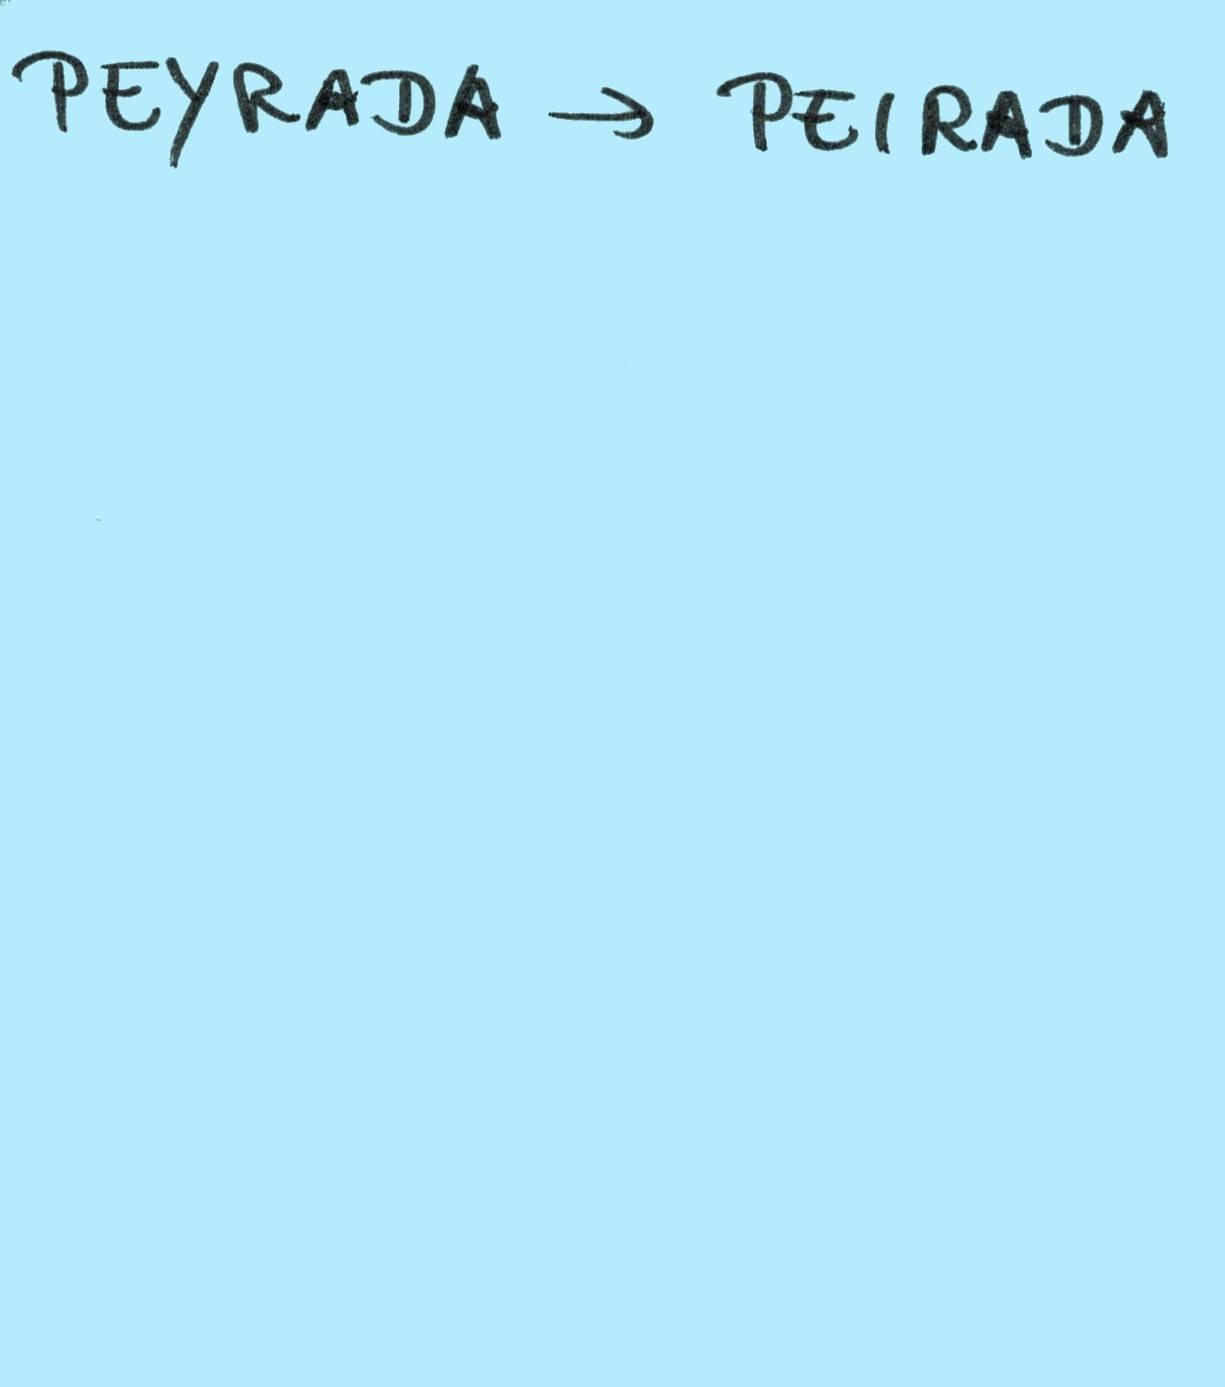 PEYRADA → PEIRADA